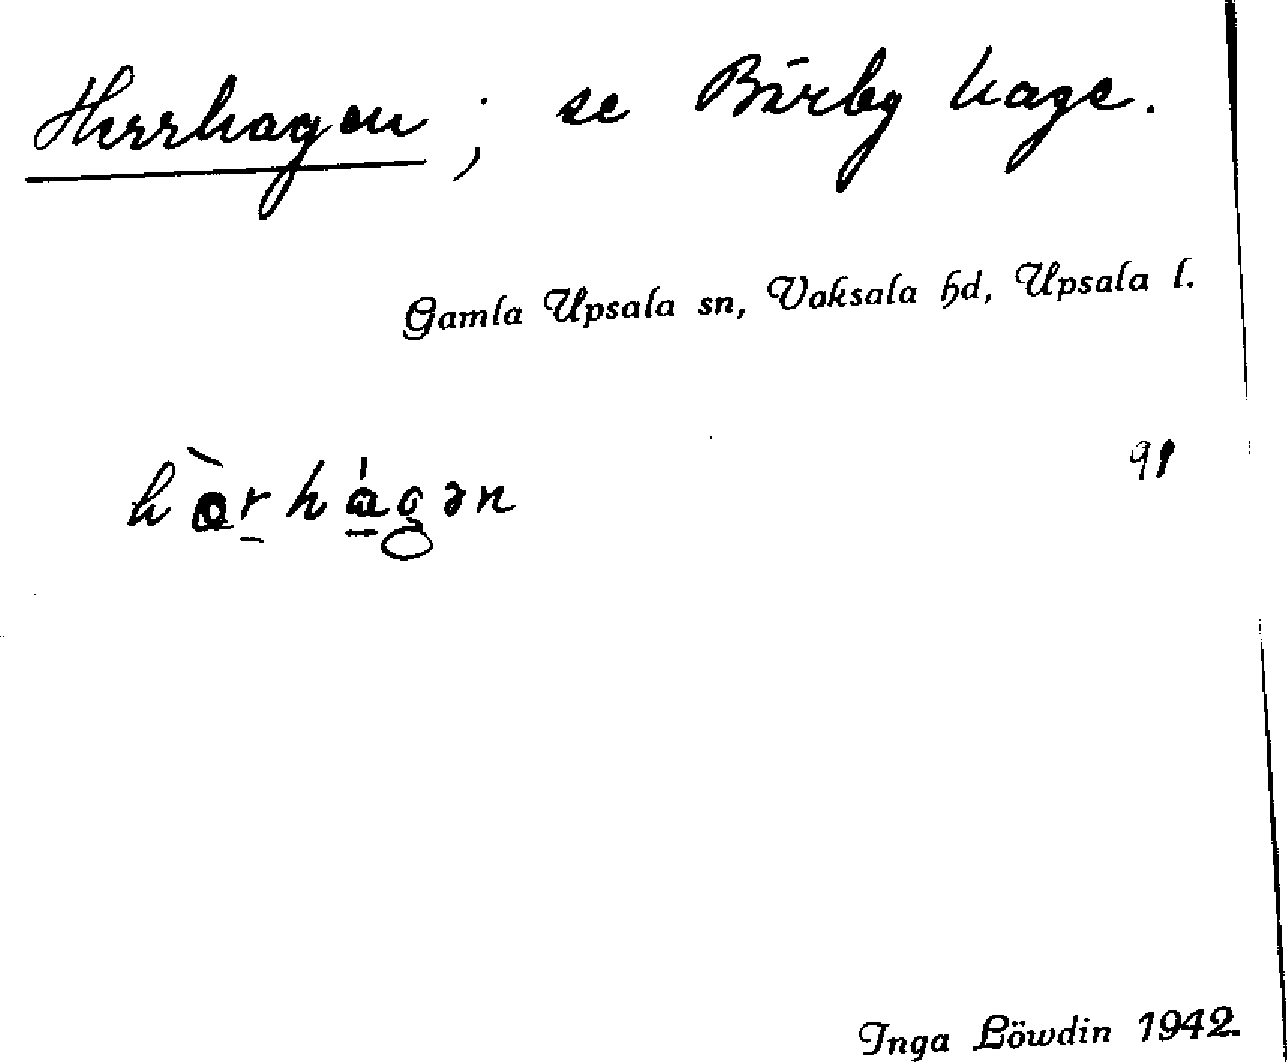 Herrhagen; se Bärby hage.
Gamla Upsala sn, Vaksala hd, Upsala l.
91
Inga Löwdin 1942.